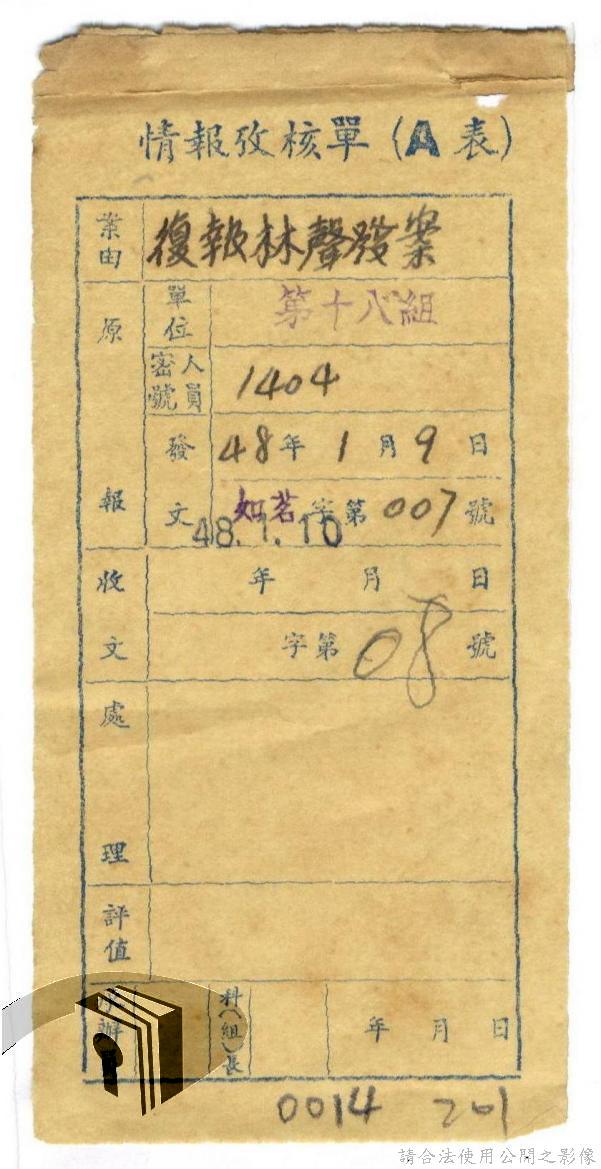 情報攷核單（A表）
案由
復報林聲發案
原報
單位
第十八組
人員密號
1404
發文
48年1月9日
如茗字第007號
48.1.10
收文
年 月 日
字第08號
處理
評值
承辦
科（組）長
年 月 日
0014 201
請合法使用公開之影像